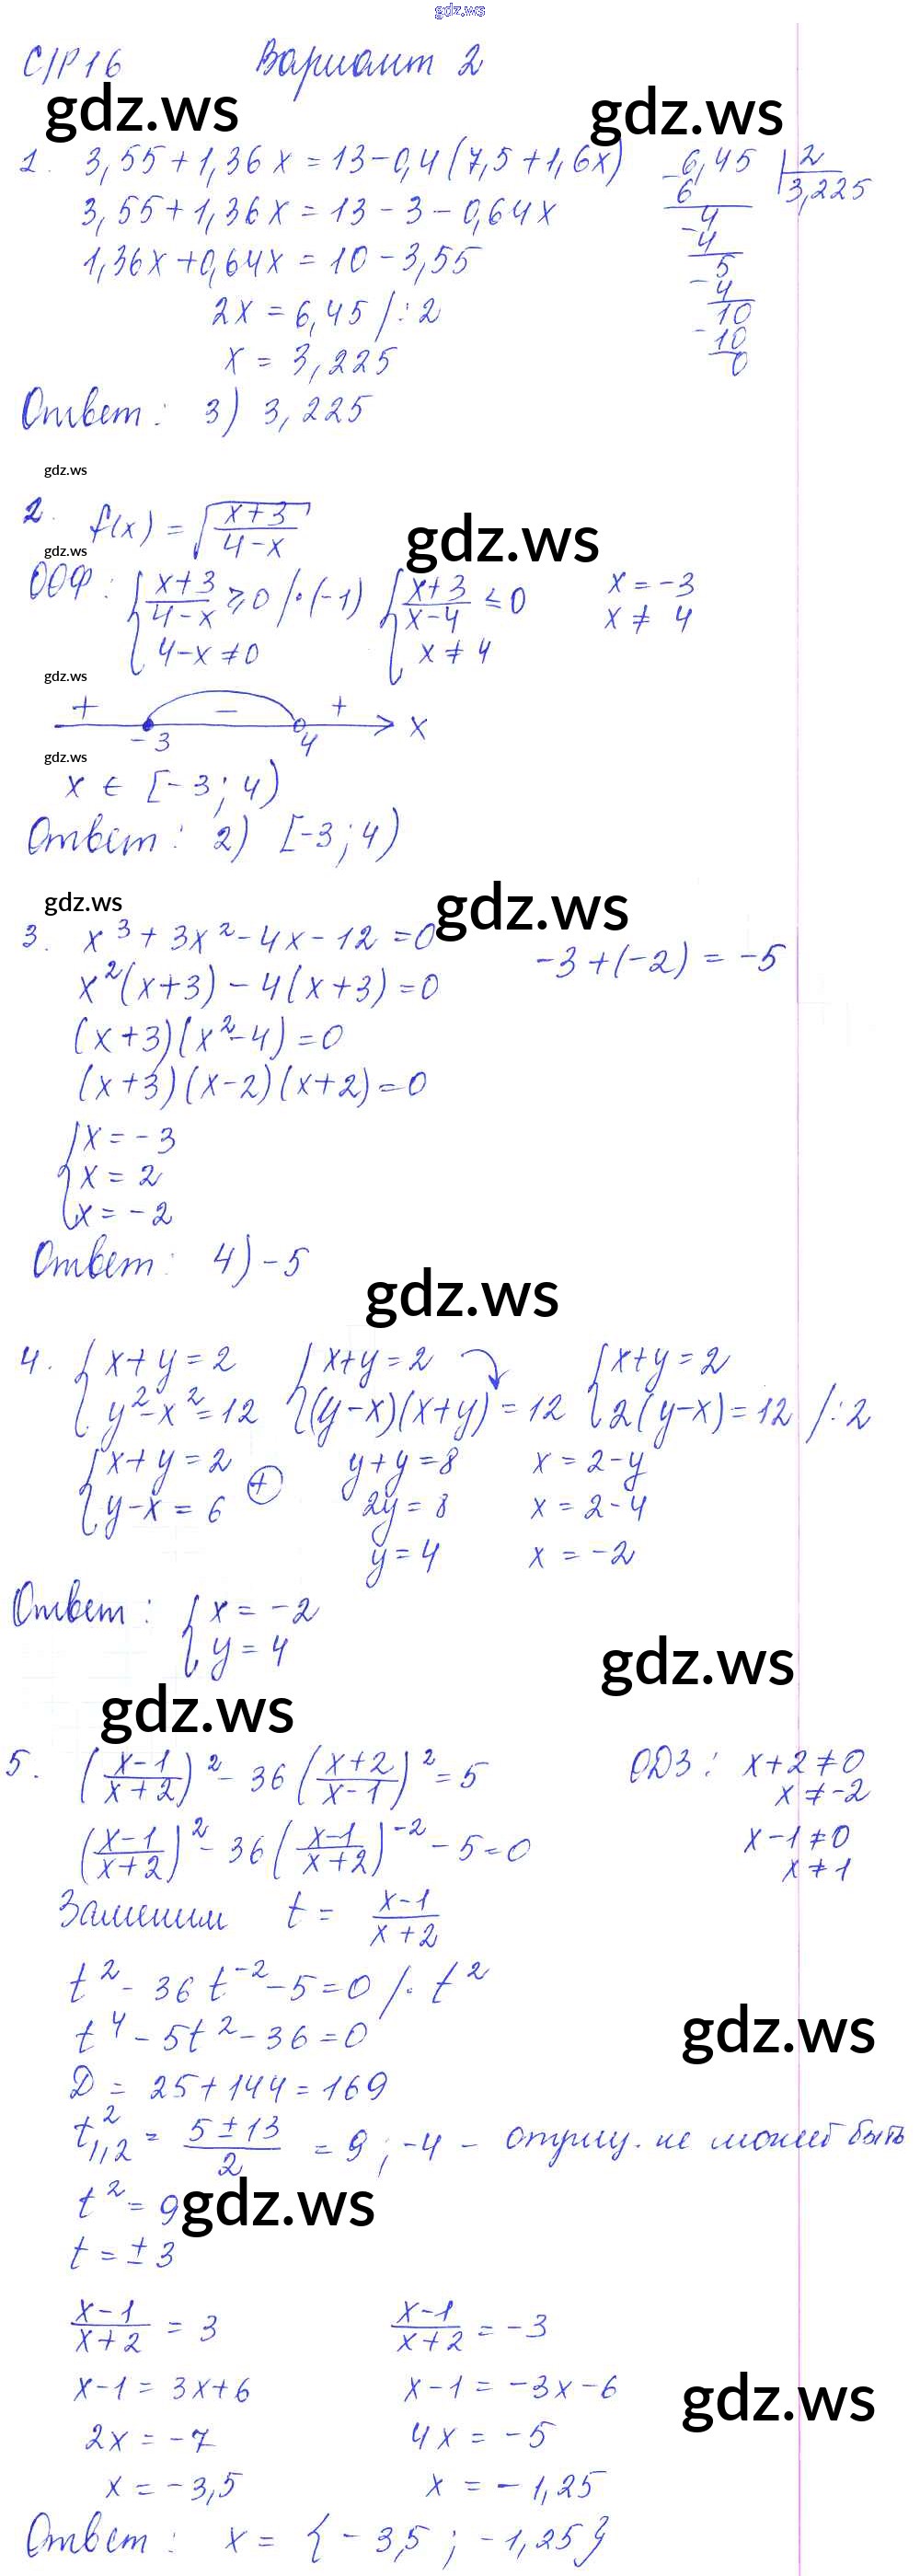 gdz.ws
С/Р 16 Вариант 2
gdz.ws gdz.ws
1. 3,55 + 1,36x = 13 - 0,4(7,5 + 1,6x)
3,55 + 1,36x = 13 - 3 - 0,64x
1,36x + 0,64x = 10 - 3,55
2x = 6,45 /:2
x = 3,225
6,45 | 2
- 6 3,225
4
- 4
5
- 4
10
- 10
0
Ответ: 3) 3,225
gdz.ws
2. f(x) = √((x+3)/(4-x))
gdz.ws
gdz.ws
ООФ: { (x+3)/(4-x) ≥ 0 /·(-1) { (x+3)/(x-4) ≤ 0 x = -3
4-x ≠ 0 x ≠ 4 x ≠ 4
gdz.ws
+ - + x
-3 4
gdz.ws
x ∈ [-3; 4)
Ответ: 2) [-3; 4)
gdz.ws gdz.ws
3. x³ + 3x² - 4x - 12 = 0 -3 + (-2) = -5
x²(x+3) - 4(x+3) = 0
(x+3)(x²-4) = 0
(x+3)(x-2)(x+2) = 0
{ x = -3
x = 2
x = -2
Ответ: 4) -5
gdz.ws
4. { x+y = 2 { x+y = 2 { x+y = 2
y²-x² = 12 (y-x)(x+y) = 12 2(y-x) = 12 /:2
{ x+y = 2 + y+y = 8 x = 2-y
y-x = 6 2y = 8 x = 2-4
y = 4 x = -2
Ответ: { x = -2
y = 4
gdz.ws
gdz.ws
5. ((x-1)/(x+2))² - 36((x+2)/(x-1))² = 5 ОДЗ: x+2 ≠ 0
x ≠ -2
((x-1)/(x+2))² - 36((x-1)/(x+2))⁻² - 5 = 0 x-1 ≠ 0
x ≠ 1
Заменим t = (x-1)/(x+2)
t² - 36t⁻² - 5 = 0 /·t²
gdz.ws
t⁴ - 5t² - 36 = 0
D = 25 + 144 = 169
t²₁,₂ = (5±13)/2 = 9; -4 - отриц. не может быть
t² = 9
gdz.ws
t = ±3
(x-1)/(x+2) = 3 (x-1)/(x+2) = -3
x-1 = 3x+6 x-1 = -3x-6
gdz.ws
2x = -7 4x = -5
x = -3,5 x = -1,25
Ответ: x = {-3,5; -1,25}